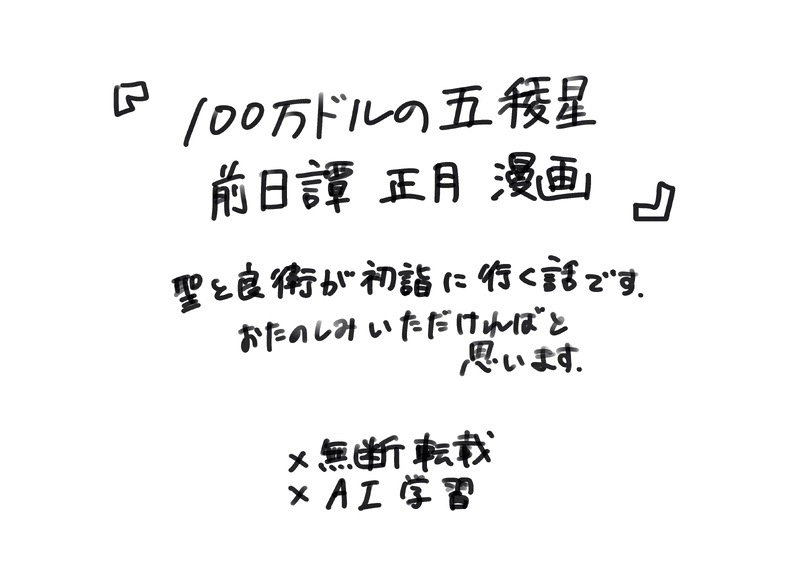 『100万ドルの五稜星
前日譚 正月 漫画』
聖と良衛が初詣に行く話です.
おたのしみいただければと
思います.
×無断転載
×AI学習